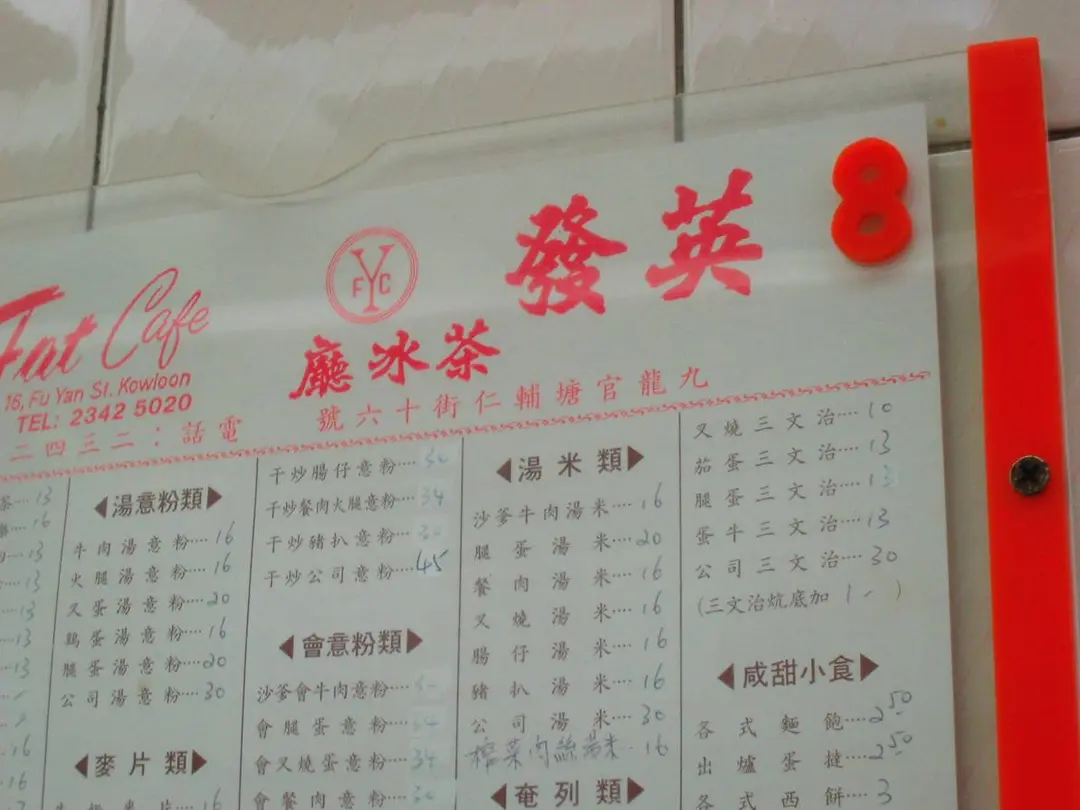 8
英發
YFC
茶冰廳
Fat Cafe
16, Fu Yan St. Kowloon
TEL: 2342 5020
九龍官塘輔仁街十六號
電話：二三四二
叉燒三文治····10
茄蛋三文治····13
腿蛋三文治····13
蛋牛三文治····13
公司三文治····30
(三文治炕底加 1-)
◀咸甜小食▶
各式麵飽····2.50
出爐蛋撻····2.50
各式西餅····3
◀湯米類▶
沙爹牛肉湯米····16
腿蛋湯米····20
餐肉湯米····16
叉燒湯米····16
腸仔湯米····16
豬扒湯米····16
公司湯米····30
榨菜肉絲湯米··16
◀奄列類▶
干炒腸仔意粉····30
干炒餐肉火腿意粉····34
干炒豬扒意粉····30
干炒公司意粉····45
◀會意粉類▶
沙爹會牛肉意粉····
會腿蛋意粉····34
會叉燒蛋意粉····34
會餐肉意粉····30
◀湯意粉類▶
牛肉湯意粉····16
火腿湯意粉····16
叉蛋湯意粉····20
鷄蛋湯意粉····16
腿蛋湯意粉····20
公司湯意粉····30
◀麥片類▶
16
茶····13
16
13
13
13
13
13
16
16